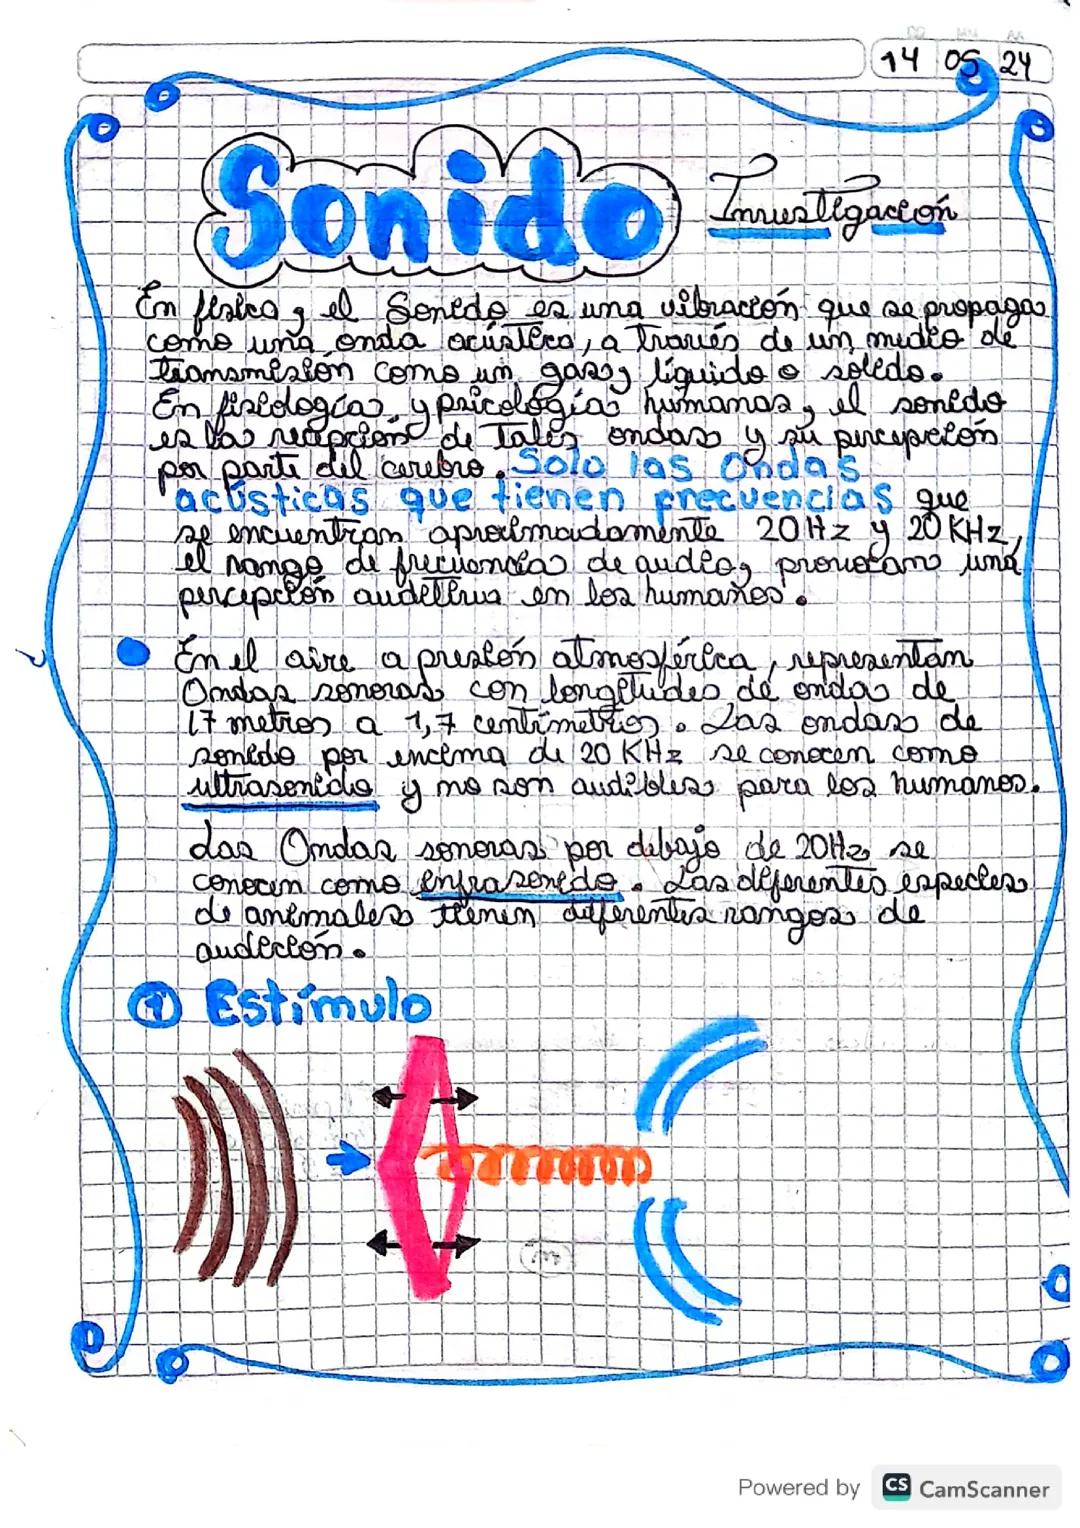 DD MM AA
14 05 24
Sonido Investigación
En física, el Sonido es una vibración que se propaga
como una onda acústica, a través de un medio de
transmisión como un gas, líquido o sólido.
En fisiología y psicología humanas, el sonido
es la recepción de Tales ondas y su percepción
por parte del cerebro. Solo las Ondas
acústicas que tienen frecuencias que
se encuentran aproximadamente 20Hz y 20 KHz,
el rango de frecuencia de audio, provocan una
percepción auditiva en los humanos.
En el aire a presión atmosférica, representan
Ondas sonoras con longitudes de onda de
17 metros a 1,7 centímetros. Las ondas de
sonido por encima de 20 KHz se conocen como
ultrasonido y no son audibles para los humanos.
Las Ondas sonoras por debajo de 20Hz se
conocen como infrasonido. Las diferentes especies
de animales tienen diferentes rangos de
audición.
1 Estímulo
Powered by CS CamScanner